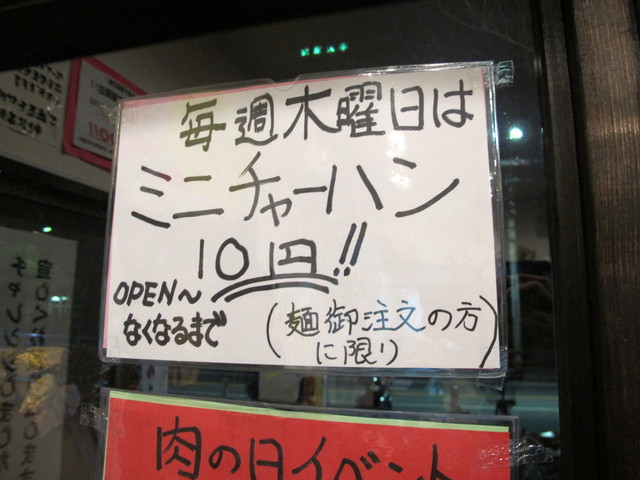 毎週木曜日は
ミニチャーハン
10円!!
OPEN～
なくなるまで
(麺御注文の方
に限り)
肉の日イベント